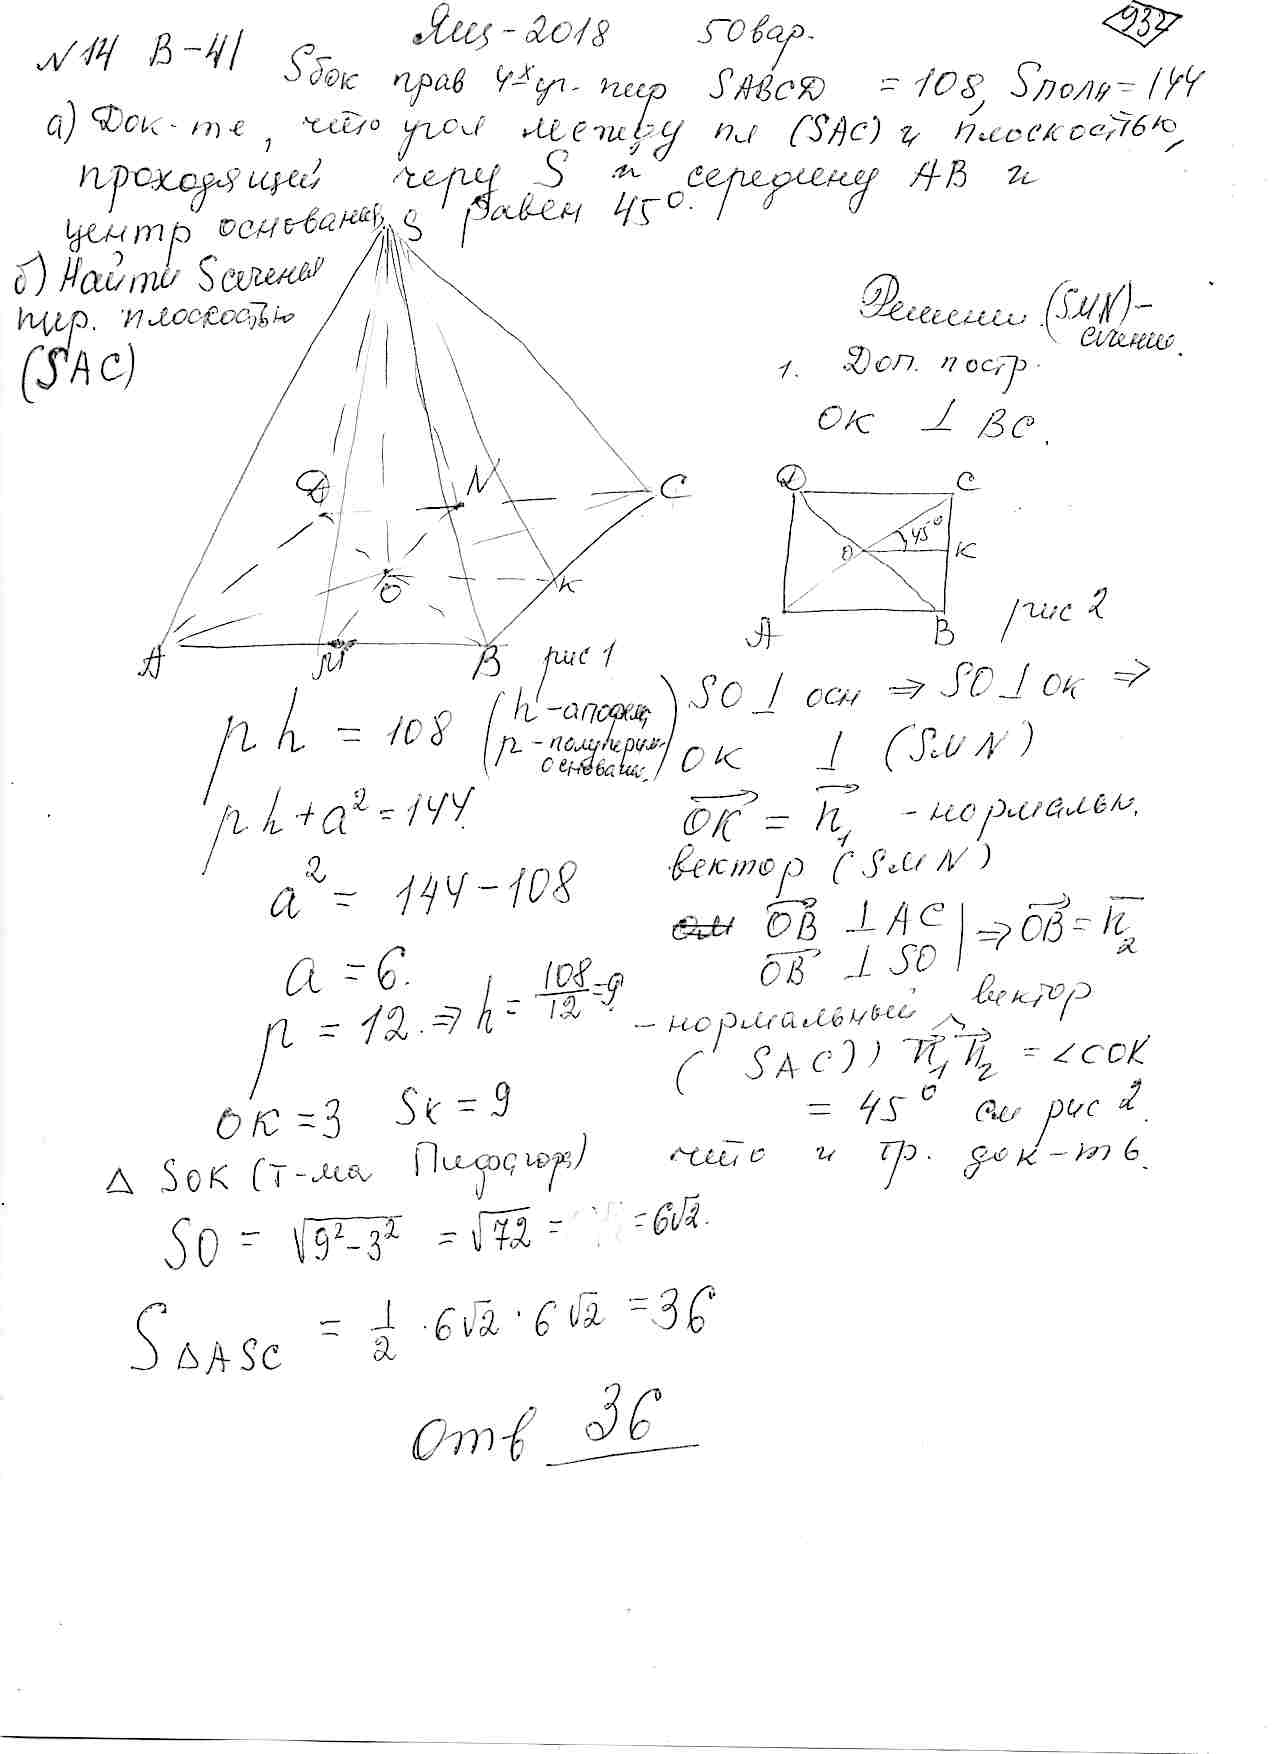 Ящ-2018 50вар.
932
N14 В-41
Sбок прав 4х уг. пир SABCD = 108, Sполн = 144
а) Док-те, что угол между пл (SAC) и плоскостью,
проходящей через S и середину AB и
центр основания равен 45°.
б) Найти Sсечения
пир. плоскостью
(SAC)
S
D
N
C
O
K
A
M
B
рис 1
Решение (SMN)-
сечение.
1. Доп. постр.
OK ⊥ BC.
D
C
45°
O
K
A
B
рис 2
ph = 108 (h-апофема, p-полуперим. основания)
ph + a² = 144.
a² = 144 - 108
a = 6.
p = 12. ⇒ h = 108/12 = 9
OK = 3 SK = 9
△ SOK (т-ма Пифагора)
SO = √9² - 3² = √72 = = 6√2.
S△ASC = 1/2 · 6√2 · 6√2 = 36
Отв 36
SO ⊥ осн ⇒ SO ⊥ OK ⇒
OK ⊥ (SMN)
OK = n₁ - нормальн.
вектор (SMN)
OB ⊥ AC
OB ⊥ SO
⇒ OB = n₂
- нормальный вектор
(SAC)) n₁ n₂ = ∠COK
= 45° см рис 2.
что и тр. док-ть.